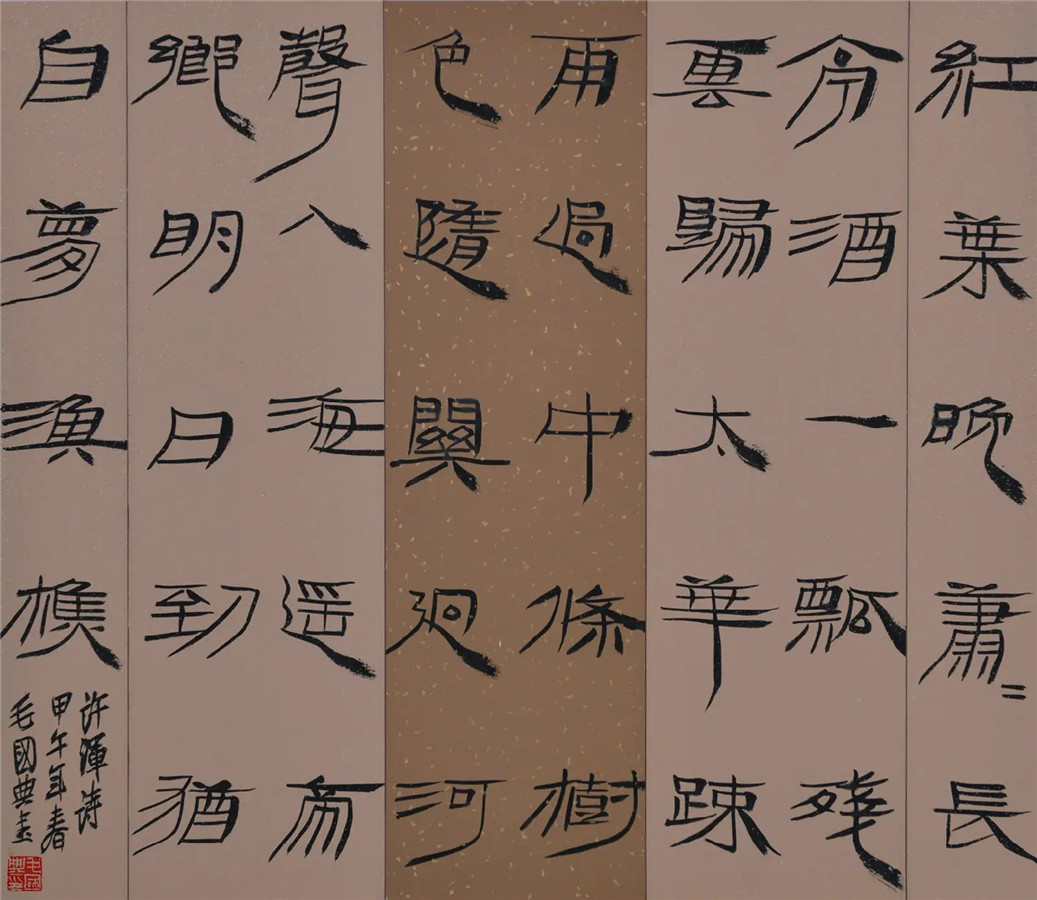 紅葉晚蕭〻長
亭酒一瓢殘
雲歸太華疎
雨過中條樹
色隨關迥河
聲入海遥帝
鄉明日到猶
自夢漁樵
許渾詩
甲午年春
毛國典書
毛國典印